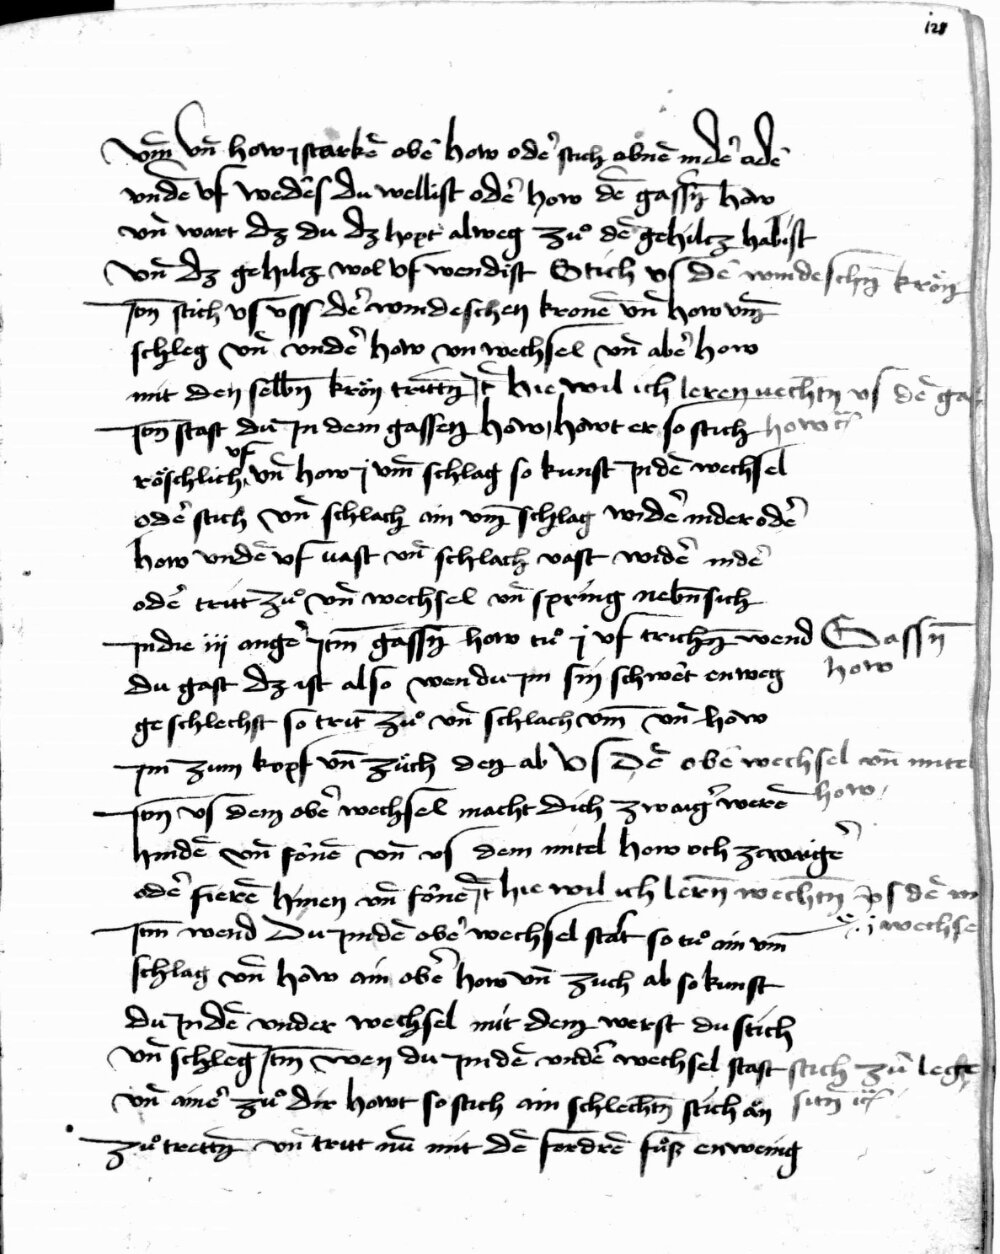 128
vm̄ vn̄ how j starkē obē how oder stich obnē in der adē
vnde vf wedēs du wellist oder how dē gassn̄ haw
vn̄ wart dz du dz hopt alweg zuͦ dē gehilcz habist
vn̄ dz gehilcz wol vf wendist Stich vs dē windeschn̄ krön
Itm̄ stich vs vss der windeschen kronē vn̄ how vm̄
schleg vn̄ vnder how vn wechsel vn̄ aber how
mit den selbn̄ krön trittn̄ It̄ hie wil ich leren vechtn̄ vs dē gas
Itm̄ stast du In dem gassen how, howt er so stich how
röschlich vf vn̄ how j vm̄ schlag so kunst In dē wechsel
oder stich vn̄ schlach ain vm̄ schlag wider in der oder
how vndē vf vast vn̄ schlach vast wider in der
oder tritt zuͦ vn̄ wechsel vn̄ spring nebn̄ sich
In die iij anger Itm̄ gassn̄ how tuͦ j vf trichn̄ wend Gassn̄
how
du gast dz ist also wen du Im sin schwert enweg
geschlechst so trit zuͦ vn̄ schlach vm̄ vn̄ how
Im zum kopf vn̄ züch den ab Vs dē obē wechsel vn̄ mitel
how
Itm̄ vs dem ober wechsel macht dich zwaiger werē
hindē vn̄ fornē vn̄ vs dem mitel how och zwaiger
oder fierē hinen vn̄ fornē It̄ hie wil ich lern̄ vechtn̄ vs dē
j wechse
Itm̄ wend Du In dē ober wechsel stast so tuͦ ain vm̄
schlag vn̄ how ain ober how vn̄ zuch ab so kunst
du In dē vnder wechsel mit dem werst du stich
vn̄ schleg Itm̄ wen du In dē vnder wechsel stast stich zū
vn̄ ainer zuͦ dir howt so stich ain schlechtn̄ stich an
zuͦ trettn̄ vn̄ tritt nū mit dē fordrē fuͦß enwenig